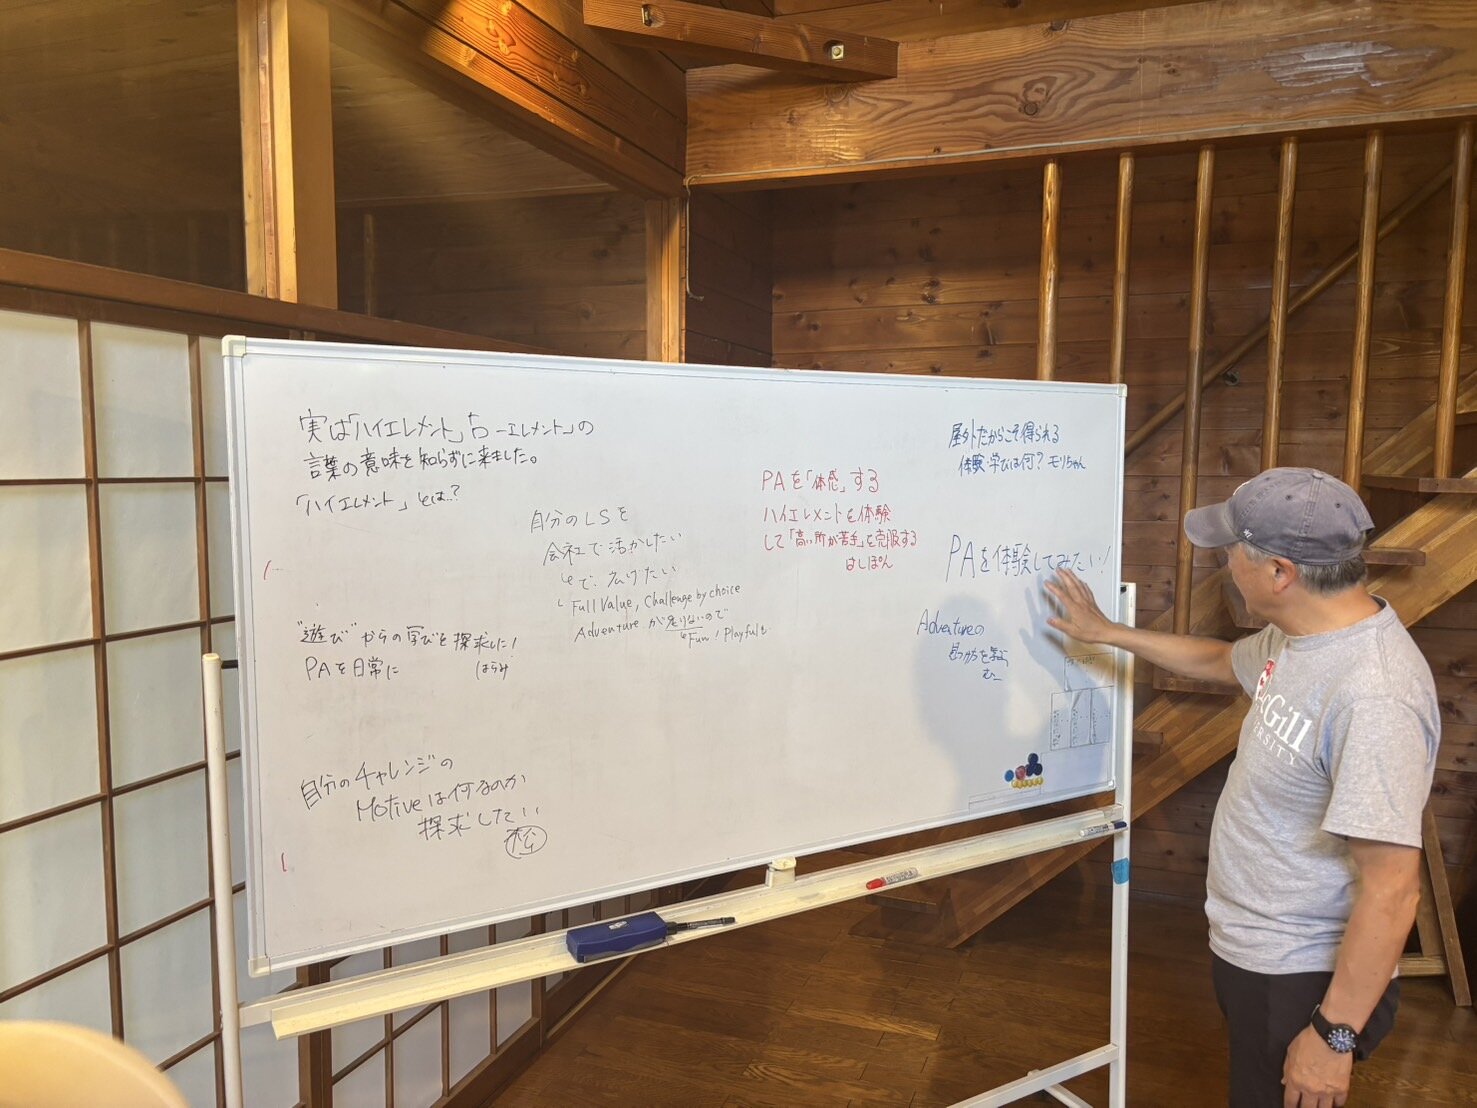 実は「ハイエレメント」「ローエレメント」の
言葉の意味を知らずに来ました。
「ハイエレメント」とは…?
"遊び"からの学びを探求したい!
PAを日常に
はらみ
自分のチャレンジの
Motiveは何なのか
探求したい
松
自分のLSを
会社で活かしたい
で、広げたい
Full Value, Challenge by choice
Adventure が足りないので
Fun! Playfulも
PAを「体感」する
ハイエレメントを体験
して「高い所が苦手」を克服する
はしぽん
屋外だからこそ得られる
体験・学びは何? モリちゃん
PAを体験してみたい!
Adventureの
むー
McGill
UNIVERSITY